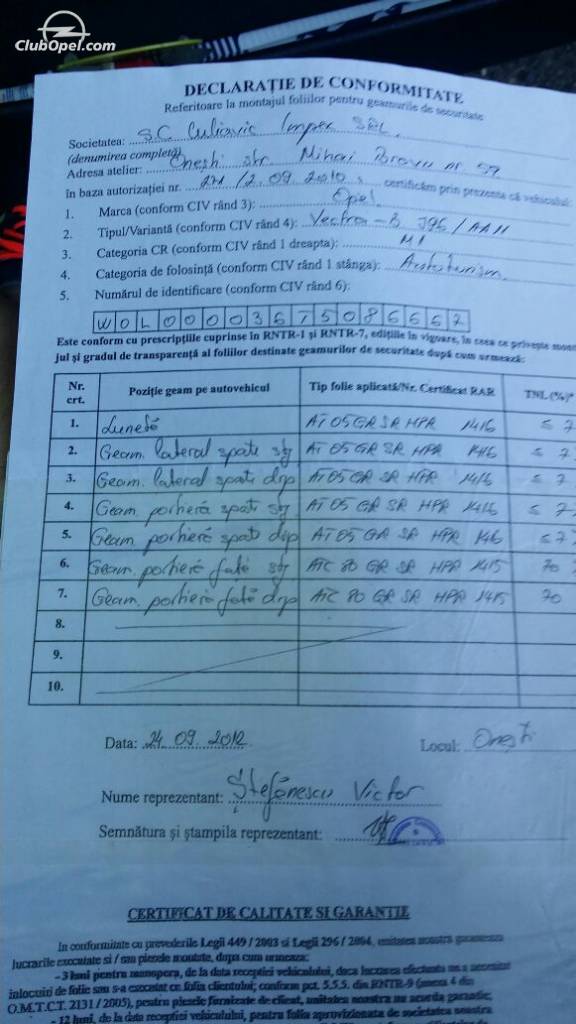 ClubOpel.com
DECLARAȚIE DE CONFORMITATE
Referitoare la montajul foliilor pentru geamurile de securitate
Societatea: SC Culiavic Impex SRL
(denumirea completă)
Adresa atelier: Onești str. Mihai Bravu nr. 59
în baza autorizației nr. 271/2.09.2010, certificăm prin prezenta că vehiculul:
1. Marca (conform CIV rând 3): Opel
2. Tipul/Variantă (conform CIV rând 4): Vectra-B J96/AA11
3. Categoria CR (conform CIV rând 1 dreapta): M1
4. Categoria de folosință (conform CIV rând 1 stânga): Autoturism
5. Numărul de identificare (conform CIV rând 6):
W0L000036T5086667
Este conform cu prescripțiile cuprinse în RNTR-1 și RNTR-7, edițiile în vigoare, în ceea ce privește
jul și gradul de transparență al foliilor destinate geamurilor de securitate după cum urmează:
Nr. crt. Poziție geam pe autovehicul Tip folie aplicată/Nr. Certificat RAR TNL (%)*
1. Lunetă AT 05 GR SR HPR 1416 ≤ 7
2. Geam. lateral spate stg AT 05 GR SR HPR 1416 ≤ 7
3. Geam. lateral spate drp AT 05 GR SR HPR 1416 ≤ 7
4. Geam portieră spate stg AT 05 GR SR HPR 1416 ≤ 7
5. Geam portieră spate drp AT 05 GR SR HPR 146 ≤ 7
6. Geam. portieră față stg ATC 80 GR SR HPR 1415 70
7. Geam. portieră față drp ATC 80 GR SR HPR 1415 70
8.
9.
10.
Data: 24.09.2012 Locul: Onești
Nume reprezentant: Ștefănescu Victor
Semnătura și ștampila reprezentant:
CERTIFICAT DE CALITATE SI GARANTIE
In conformitate cu prevederile Legii 449 / 2003 si Legii 296 / 2004, unitatea noastra garanteaza
lucrarile executate si / sau piesele montate, dupa cum urmeaza:
- 3 luni pentru manopera, de la data receptiei vehiculului, daca lucrarea efectuata nu a necesitat
inlocuiri de folie sau s-a executat cu folia clientului; conform pct. 5.5.5. din RNTR-9 (anexa 4 din
O.M.T.C.T. 2131 / 2005), pentru piesele furnizate de client, unitatea noastra nu acorda garantie;
- 12 luni, de la data receptiei vehiculului, pentru folia aprovizionata de societatea noastra